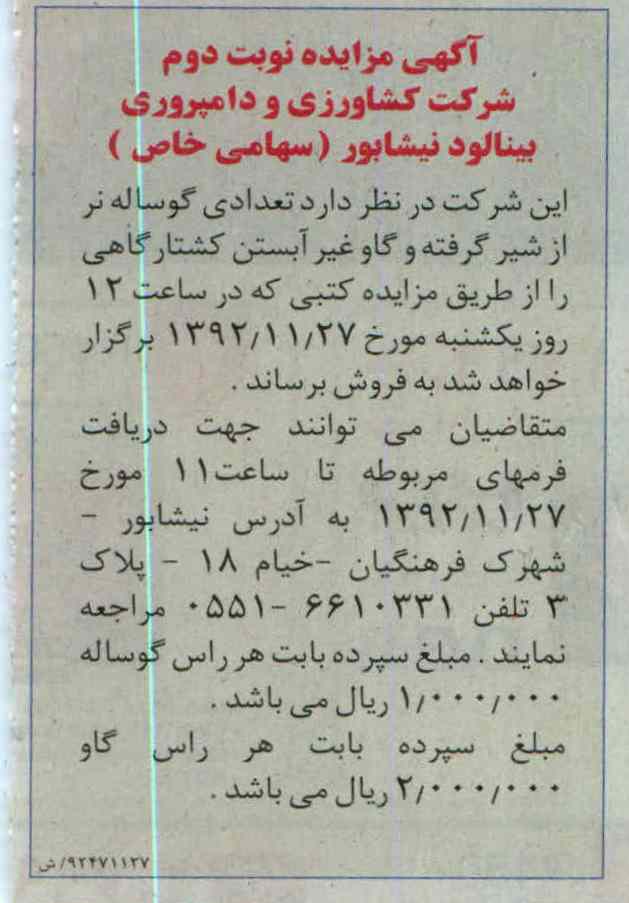 آگهی مزایده نوبت دوم
شرکت کشاورزی و دامپروری
بینالود نیشابور (سهامی خاص )
این شرکت در نظر دارد تعدادی گوساله نر
از شیر گرفته و گاو غیر آبستن کشتارگاهی
را از طریق مزایده کتبی که در ساعت ۱۲
روز یکشنبه مورخ ۱۳۹۲/۱۱/۲۷ برگزار
خواهد شد به فروش برساند .
متقاضیان می توانند جهت دریافت
فرمهای مربوطه تا ساعت۱۱ مورخ
۱۳۹۲/۱۱/۲۷ به آدرس نیشابور -
شهرک فرهنگیان -خیام ۱۸ - پلاک
۳ تلفن ۶۶۱۰۳۳۱ -۰۵۵۱ مراجعه
نمایند . مبلغ سپرده بابت هر راس گوساله
۱/۰۰۰/۰۰۰ ریال می باشد .
مبلغ سپرده بابت هر راس گاو
۲/۰۰۰/۰۰۰ ریال می باشد .
۹۲۴۷۱۱۲۷/ ش